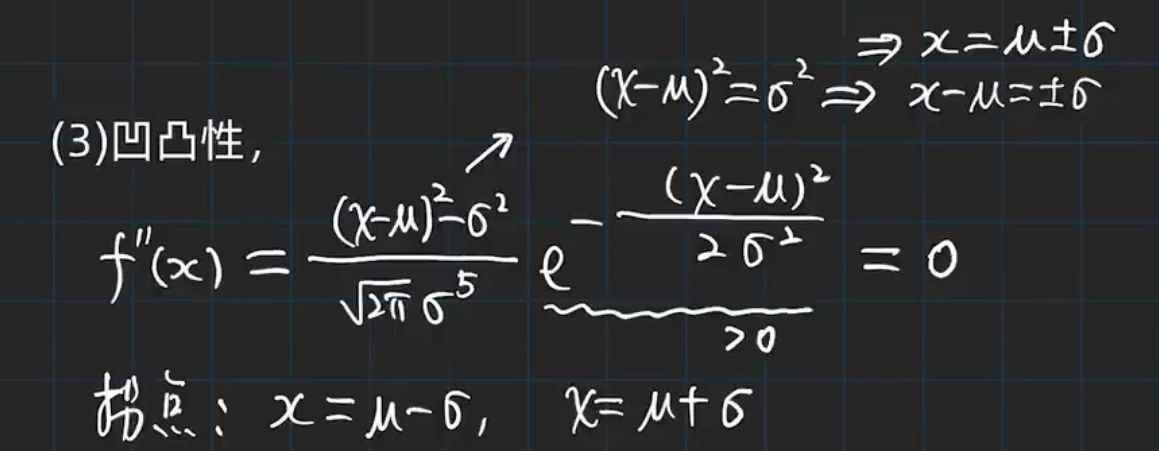 ⇒ x=μ±σ
(x-μ)²=σ² ⇒ x-μ=±σ
(3)凹凸性,
f''(x) = \frac{(x-μ)²-σ²}{\sqrt{2π} σ⁵} e^{-\frac{(x-μ)²}{2σ²}} = 0
>0
拐点: x=μ-σ, x=μ+σ